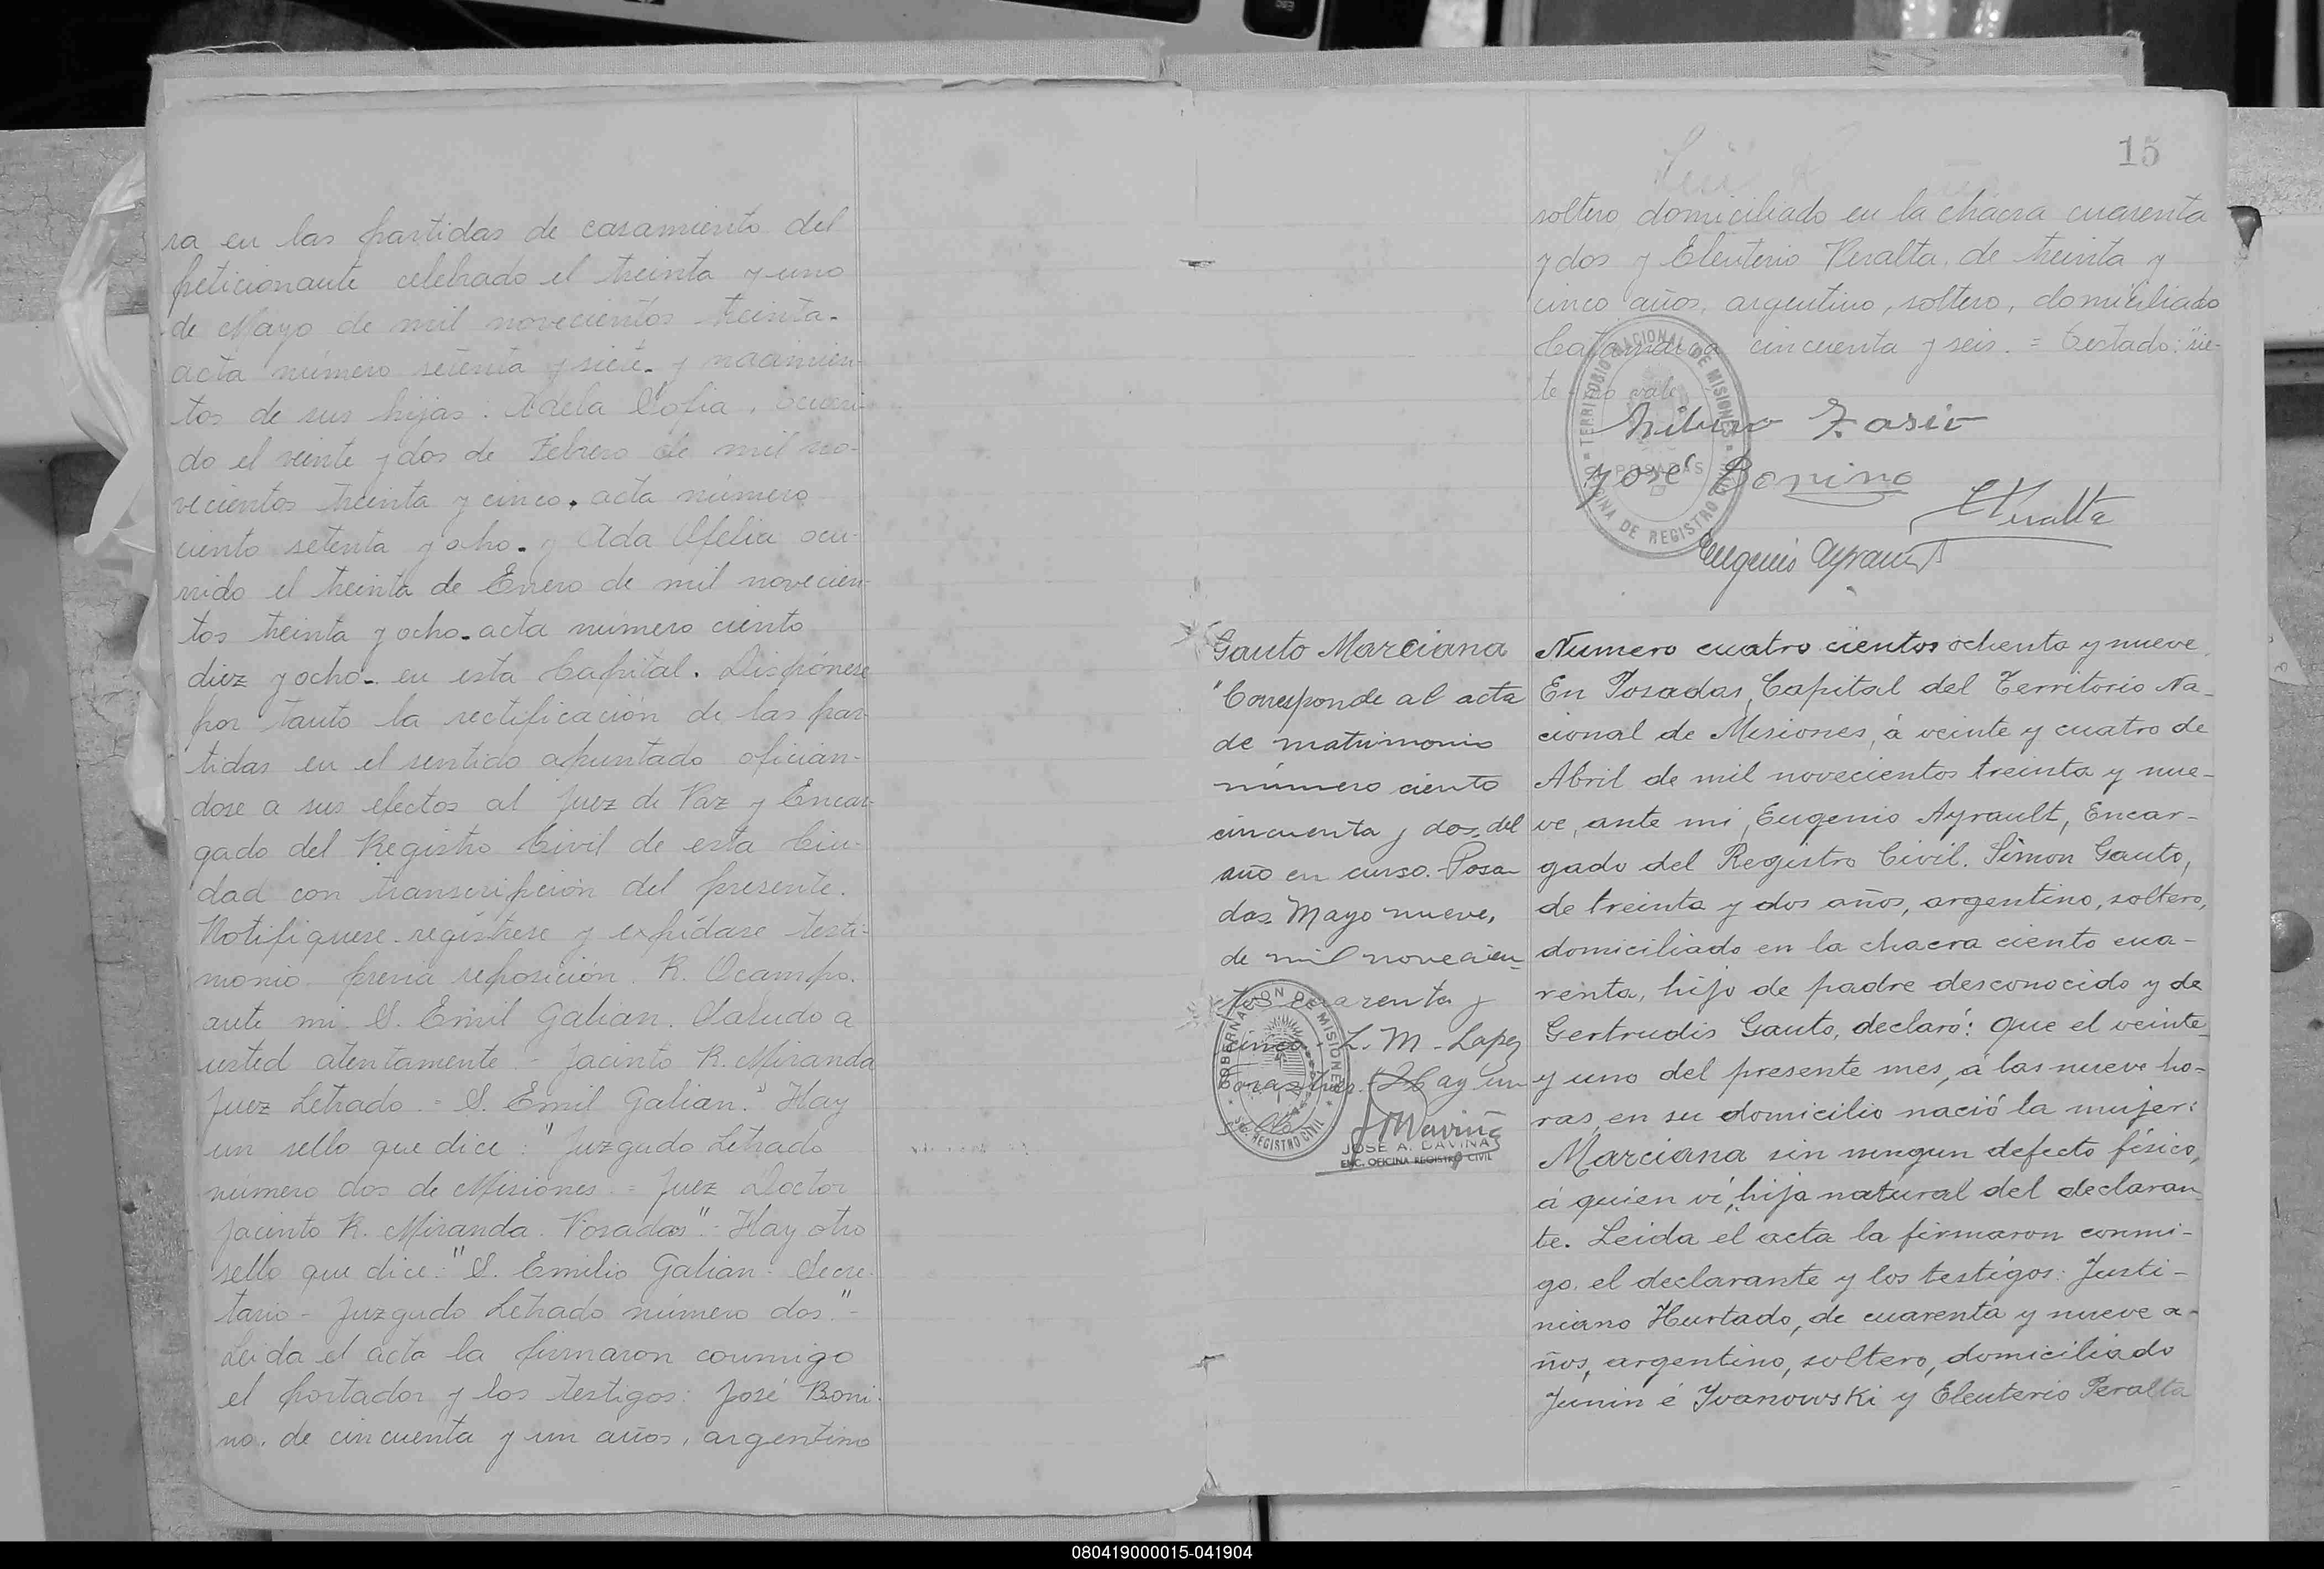 ra en las partidas de casamiento del
peticionante celebrado el treinta y uno
de Mayo de mil novecientos treinta.
acta número setenta y siete. y nacimien-
tos de sus hijas: Adela Sofia, ocurri-
do el veinte y dos de Febrero de mil no-
vecientos treinta y cinco. acta número
ciento setenta y ocho. y Ada Ofelia ocu-
rrido el treinta de Enero de mil novecien-
tos treinta y ocho. acta número ciento
diez y ocho. en esta Capital. Dispónese
por tanto la rectificación de las par-
tidas en el sentido apuntado ofician-
dose a sus efectos al Juez de Paz y Encar-
gado del Registro Civil de esta Ciu-
dad con transcripción del presente.
Notifiquese. regístrese y expídase testi-
monio. previa reposición. R. Ocampo.
ante mi. S. Emil Galian. Saludo a
usted atentamente - Jacinto R. Miranda
Juez Letrado. = S. Emil Galian." Hay
un sello que dice: "Juzgado Letrado
número dos de Misiones. = Juez Doctor
Jacinto R. Miranda. Posadas". Hay otro
sello que dice: "S. Emilio Galian - Secre-
tario - Juzgado Letrado número dos."-
Leida el acta la firmaron conmigo
el portador y los testigos: José Boni-
no. de cincuenta y un años, argentino
15
soltero, domiciliado en la chacra cuarenta
y dos y Eleuterio Peralta. de treinta y
cinco años, argentino, soltero, domiciliado
Catamarca cincuenta y seis. = Testado: "sie-
te" no vale
TERRITORIO NACIONAL DE MISIONES
POSADAS
OFICINA DE REGISTRO CIVIL
José Bonino
EPeralta
Eugenio Ayrault
Gauto Marciana
"Corresponde al acta
de matrimonio
número ciento
cincuenta y dos, del
año en curso. Posa-
das Mayo nueve,
de mil novecien-
tos cuarenta y
cinco. L. M. Lopez
Hay un
GOBERNACION DE MISIONES
REGISTRO CIVIL
JOSE A. DAVIÑA
ENC. OFICINA REGISTRO CIVIL
Numero cuatro cientos ochenta y nueve.
En Posadas, Capital del Territorio Na-
cional de Misiones, á veinte y cuatro de
Abril de mil novecientos treinta y nue-
ve, ante mi, Eugenio Ayrault, Encar-
gado del Registro Civil. Simon Gauto,
de treinta y dos años, argentino, soltero,
domiciliado en la chacra ciento cua-
renta, hijo de padre desconocido y de
Gertrudis Gauto, declaró: Que el veinte
y uno del presente mes, á las nueve ho-
ras, en su domicilio nació la mujer:
Marciana sin ningun defecto físico,
á quien ví, hija natural del declaran
te. Leida el acta la firmaron conmi-
go. el declarante y los testigos: Justi-
niano Hurtado, de cuarenta y nueve a-
ños, argentino, soltero, domiciliado
Junin é Yvanowski y Eleuterio Peralta
080419000015-041904